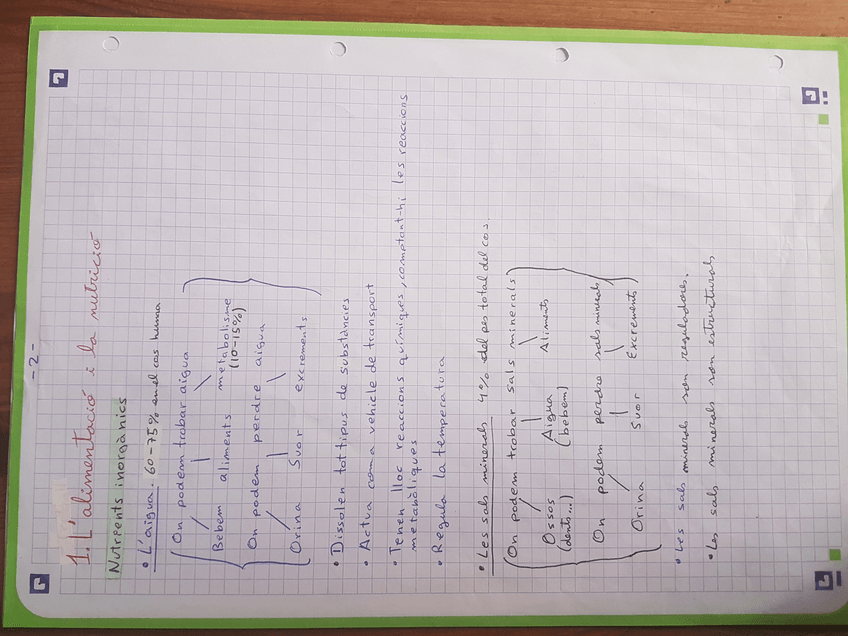 - 2 -
1. L'alimentació i la nutrició
Nutrients inorgànics
• L'aigua. 60-75% en el cos humà
On podem trobar aigua
Bebem aliments metabolisme
(10-15%)
On podem perdre aigua
Orina Suor excrements
• Dissolen tot tipus de substàncies
• Actua com a vehicle de transport
• Tenen lloc reaccions químiques, comptant-hi les reaccions
metabòliques
• Regula la temperatura
• Les sals minerals 4% del pes total del cos.
On podem trobar sals minerals
Ossos Aigua Aliments
(dents...) (bebem)
On podem perdre sals minerals
Orina Suor Excrements
• Les sals minerals son reguladores.
• Les sals minerals son estructurals